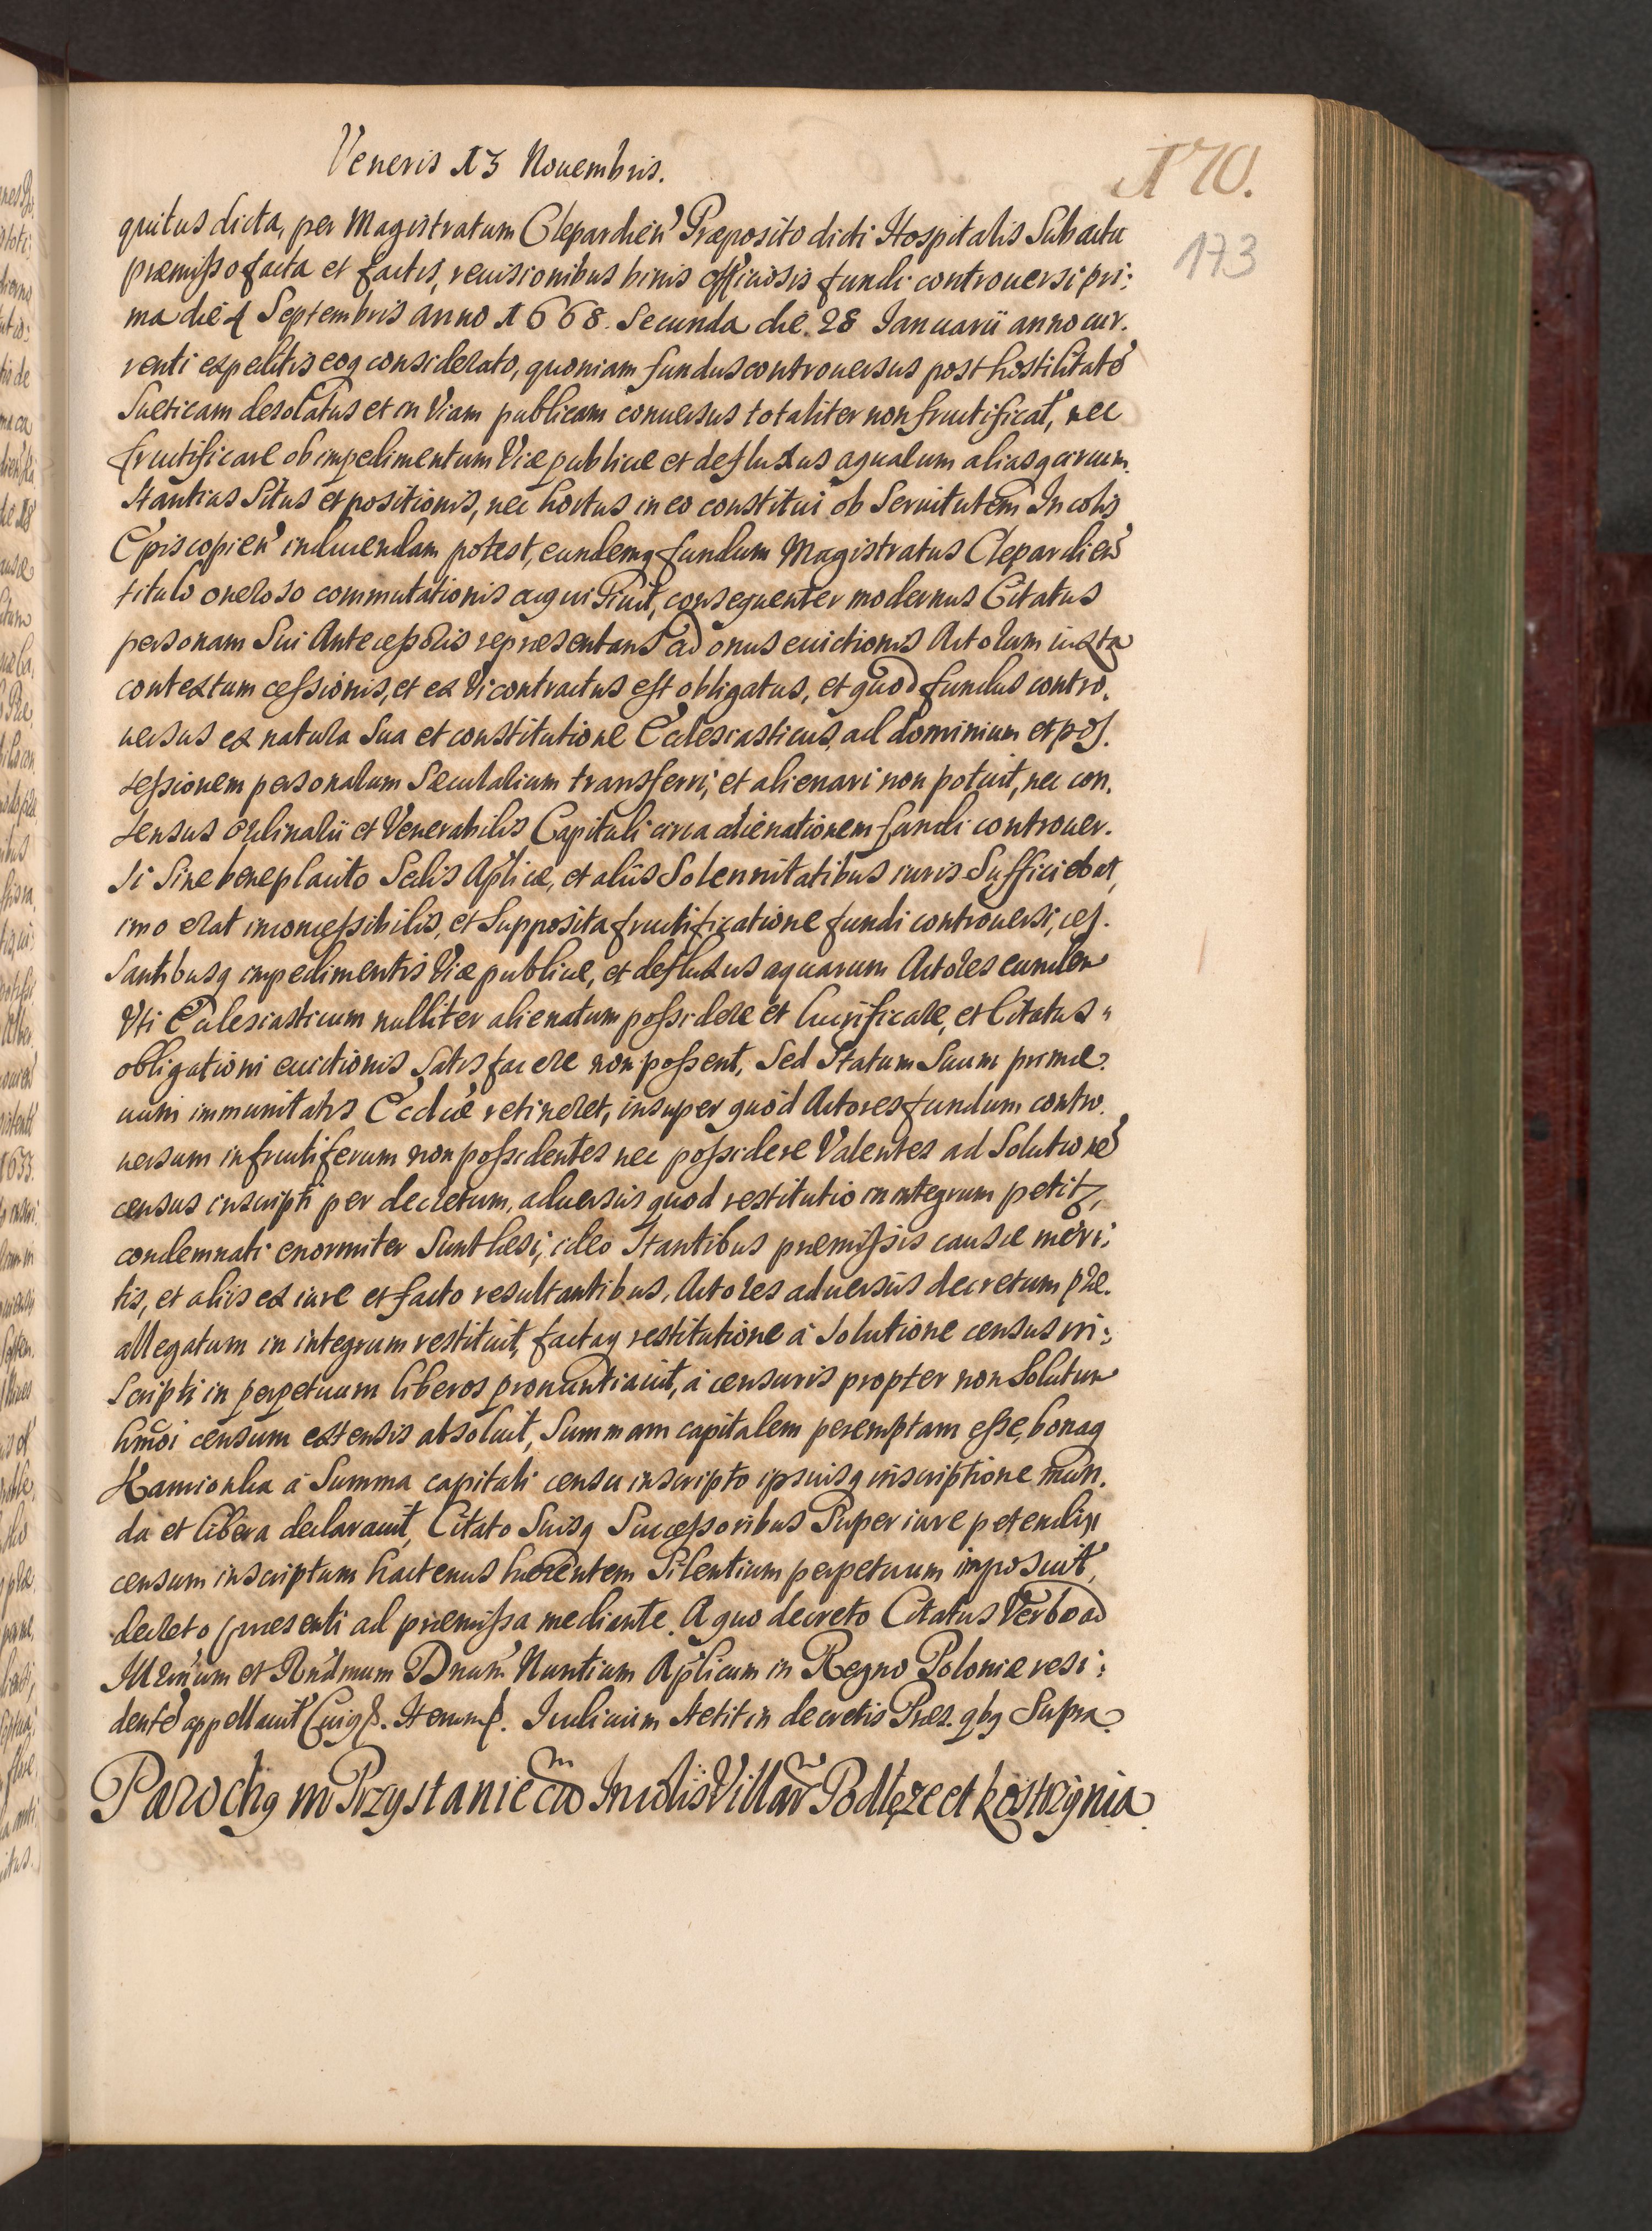 Veneris 13 Nouembris.
170.
173
quitus dicta, per Magistratum Clepardien̄ Præposito dicti Hospitalis Sub actu
præmisso facta et factis, reuisionibus binis officiosis fundi controuersi pri:
ma die 4 Septembris anno 1668. Secunda die. 28 Ianuarii anno cur.
renti expeditis eoq considerato, quoniam fundus controuersus post hostilitatē
Sueticam desolatus et in Viam publicam conuersus totaliter non fructificat, nec
fructificare ob impedimentum Viæ publicæ et defluxus aquarum aliasq circum.
stantias Situs et positionis, nec hortus in eo constitui ob Seruitutem Incolis
Episcopien̄ inducendam potest, eundemq fundum Magistratus Clepardien̄
titulo oneroso commutationis acquisiuit, consequenter modernus Citatus
personam Sui Antecessoris repræsentans ad onus euictionis Actorum iuxta
contextum cessionis, et ex Vi contractus est obligatus, et quod fundus contro.
uersus ex natura Sua et constitutione Ecclesiasticus, ad dominium et pos.
sessionem personarum Sæcularium transferri, et alienari non potuit, nec con.
sensus Ordinarii et Venerabilis Capituli circa alienationem fundi controuer.
si Sine beneplacito Sedis Aplicæ, et aliis Solennitatibus iuris Sufficiebat,
imo erat inconcessibilis, et Supposita fructificatione fundi controuersi, ces.
santibusq impedimentis Viæ publicæ, et defluxus aquarum Actores eundem
Vti Ecclesiasticum nulliter alienatum possidere et lucrificare, et Citatus
obligationi euictionis Satisfacere non possent, Sed Statum Suum primæ.
uum immunitatis Eccliæ retineret, insuper quod Actores fundum contro.
uersum infructiferum non possidentes nec possidere Valentes ad Solutionē
census inscripti per decretum, aduersus quod restitutio in integrum petitz,
condemnati enormiter Sunt læsi; ideo Stantibus præmissis causæ meri:
tis, et aliis ex iure et facto resultantibus, Actores aduersus decretum præ.
allegatum in integrum restituit, factaq restitutione à Solutione census in:
scripti in perpetuum liberos pronuntiauit, à censuris propter non Solutum
hmōi censum extensis absoluit, Summam capitalem peremptam esse, bonaq
Kamionka à Summa capitali censu inscripto ipsiusq inscriptione mun.
da et libera declarauit, Citato Suisq Successoribus Super iure petendi
censum inscriptum hactenus hærentem Silentium perpetuum imposuit,
decreto præsenti ad præmissa mediante. A quo decreto Citatus Verbo ad
Illrm̄um et Rndmum Dnum Nuntium Aplicum in Regno Poloniæ resi:
dentē appellauit Cuiq. Iterum. Iudicium stetit in decretis Præs. qbq Supra
Parochq in Przystanie cū Incolis Villar Podłęże et Kostrzynia